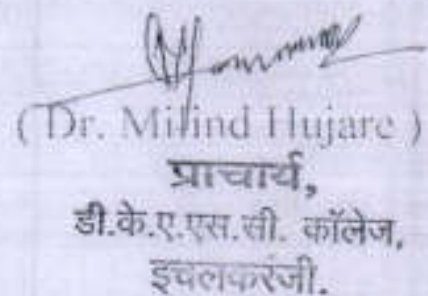 ( Dr. Milind Hujare )
प्राचार्य,
डी.के.ए.एस.सी. कॉलेज,
इचलकरंजी.